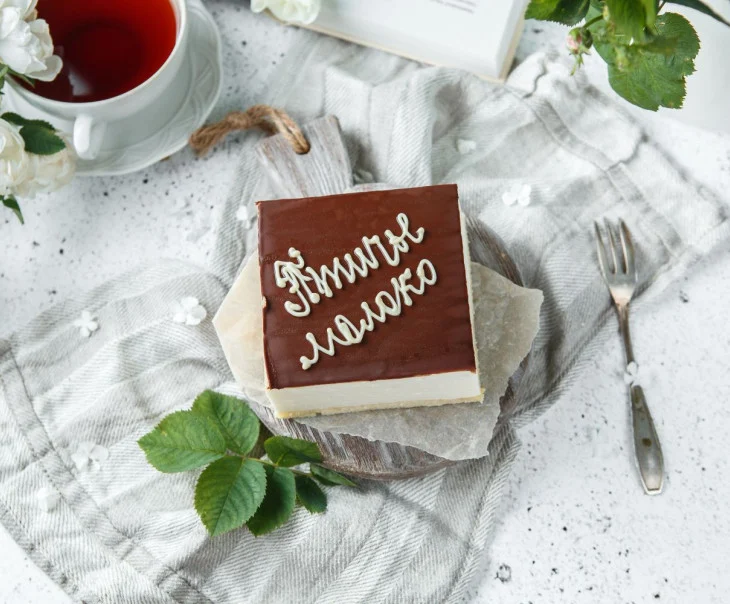 Птичье
молоко